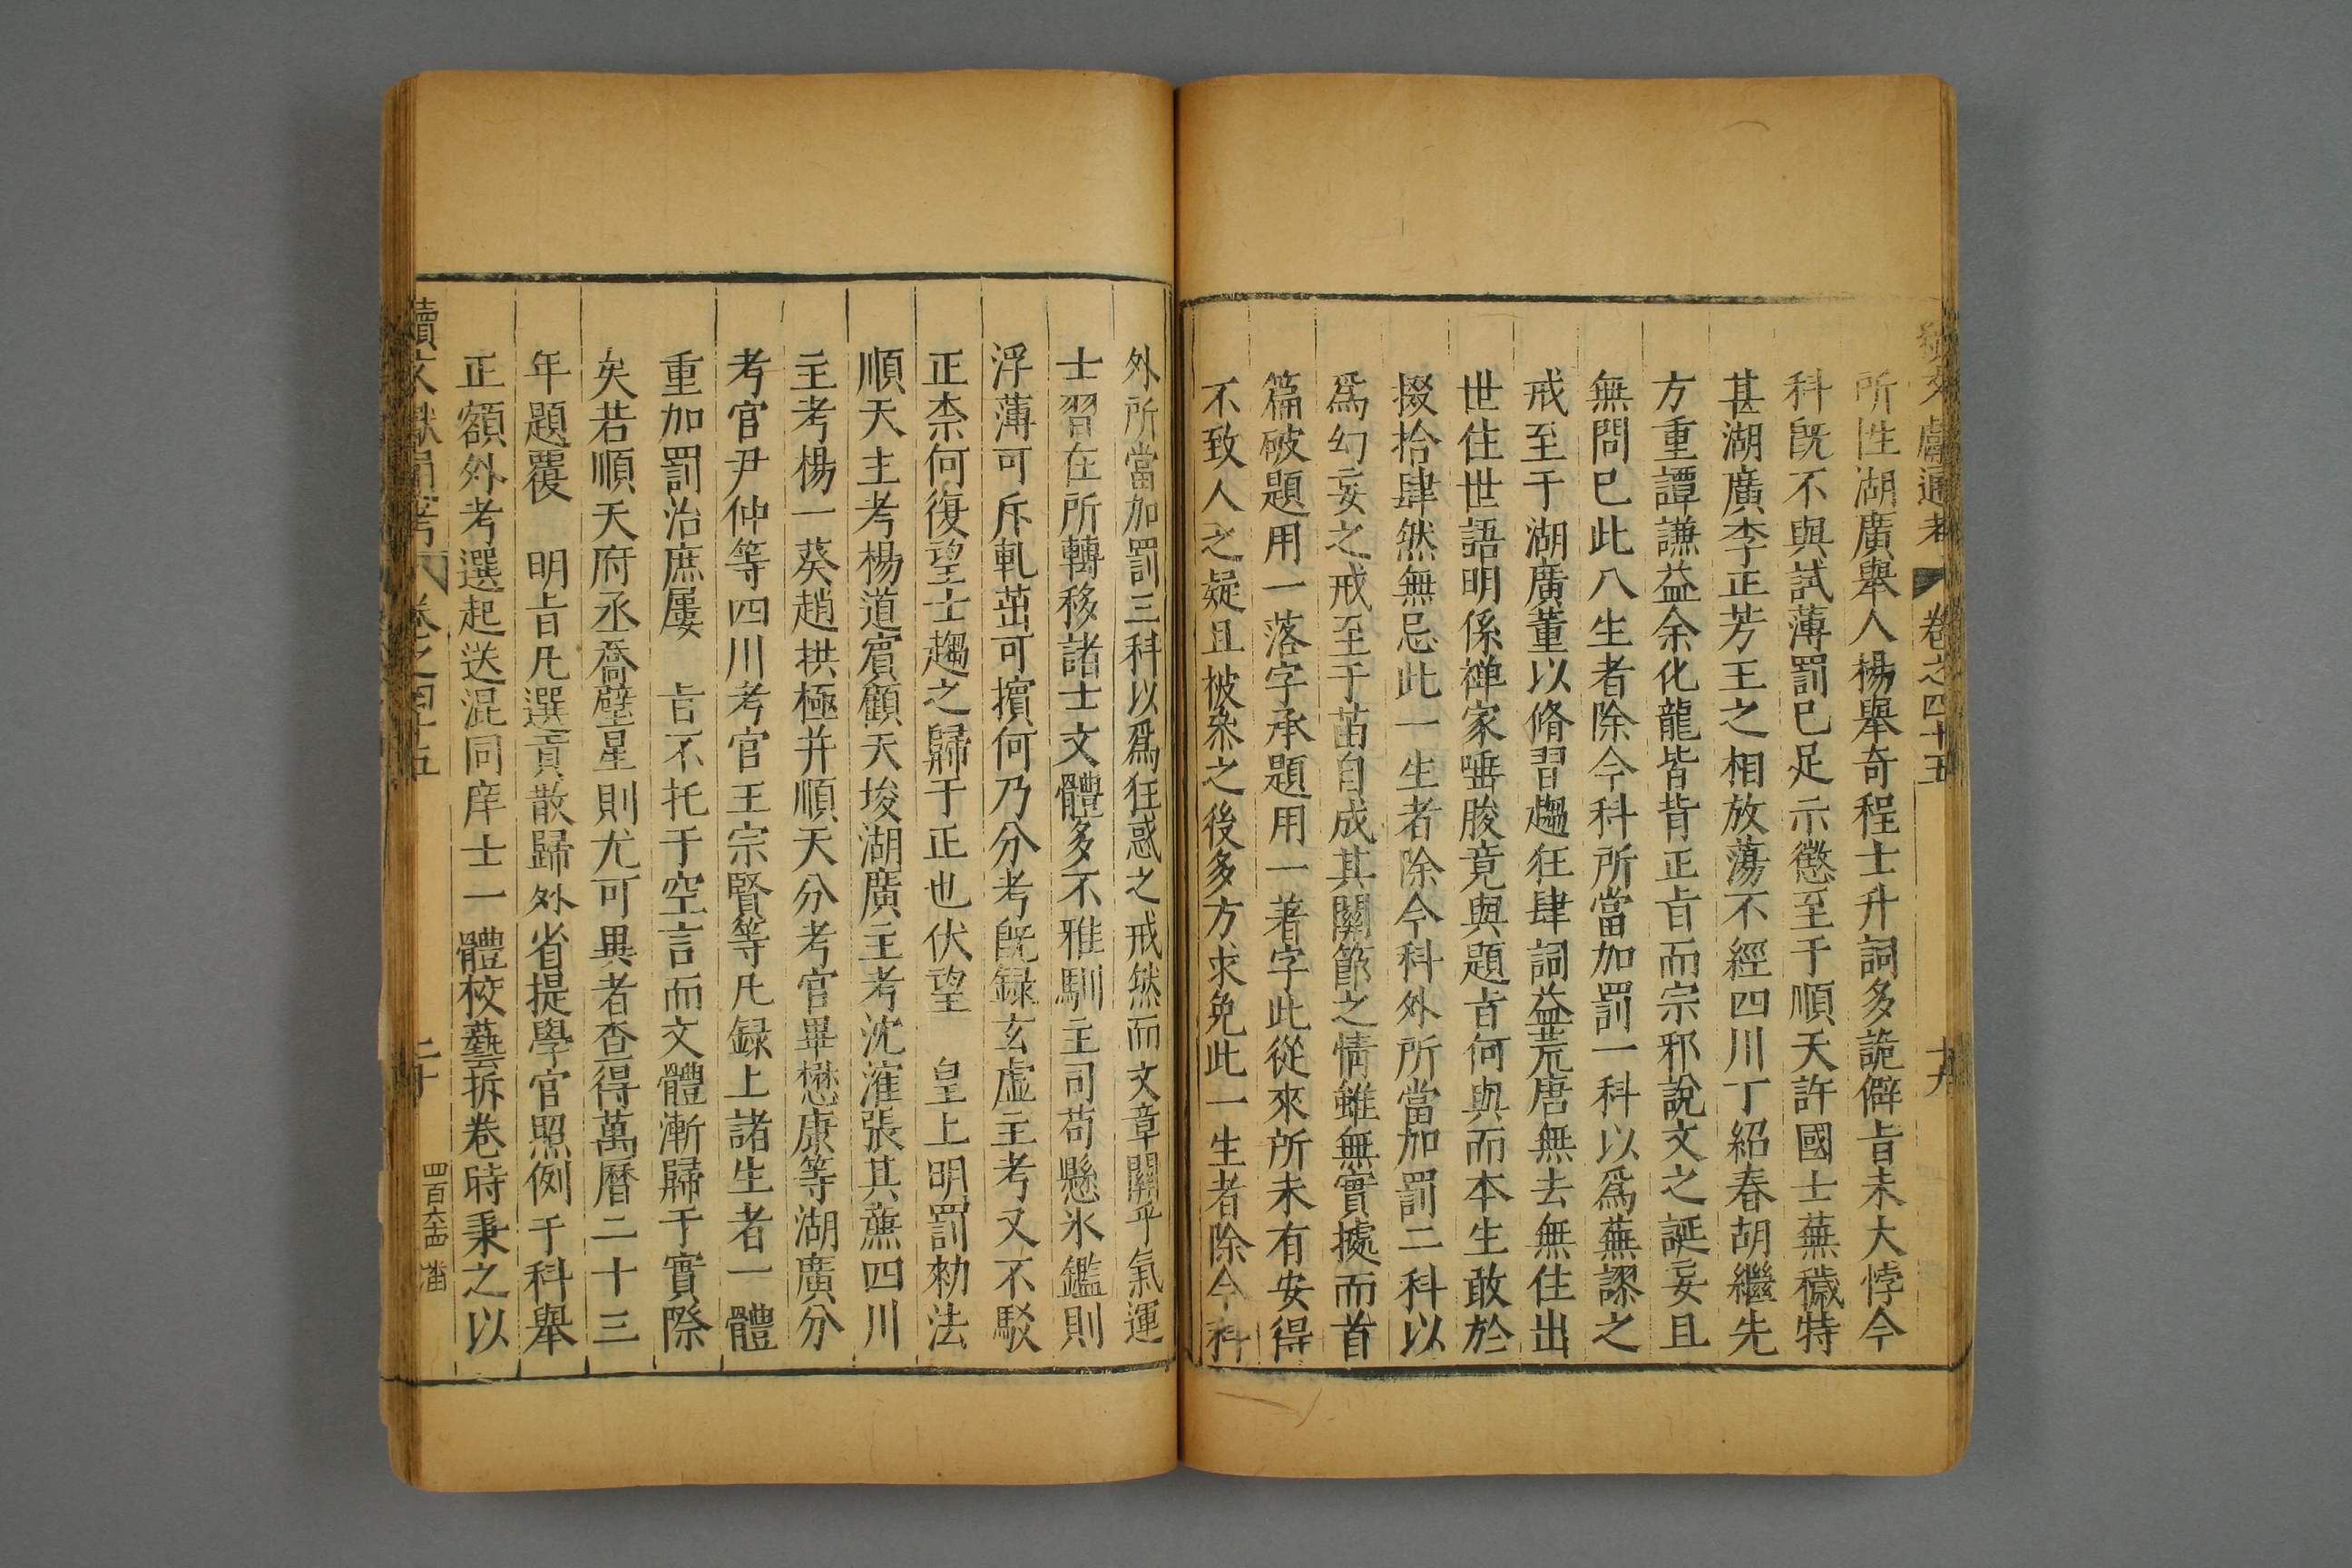 續文獻通考 卷之四十五 十九
所性湖廣舉人楊舉奇程士升詞多詭僻旨未大悖今
科旣不與試薄罰已足示懲至于順天許國士蕪穢特
甚湖廣李正芳王之相放蕩不經四川丁紹春胡繼先
方重譚謙益余化龍皆背正旨而宗邪說文之誕妄且
無問已此八生者除今科所當加罰一科以爲蕪謬之
戒至于湖廣董以脩習趨狂肆詞益荒唐無去無住出
世住世語明係禅家唾朘竟與題旨何與而本生敢於
掇拾肆然無忌此一生者除今科外所當加罰二科以
爲幻妄之戒至于苗自成其關節之情雖無實據而首
篇破題用一落字承題用一著字此從來所未有安得
不致人之疑且被叅之後多方求免此一生者除今科
外所當加罰三科以爲狂惑之戒然而文章關乎氣運
士習在所轉移諸士文體多不雅馴主司苟懸氷鑑則
浮薄可斥軋茁可擯何乃分考旣録玄虛主考又不駁
正柰何復望士趨之歸于正也伏望 皇上明罰勑法
順天主考楊道賓顧天埈湖廣主考沈㴶張其㢘四川
主考楊一葵趙拱極并順天分考官畢懋康等湖廣分
考官尹仲等四川考官王宗賢等凡録上諸生者一體
重加罰治庶屢 旨不托于空言而文體漸歸于實際
矣若順天府丞喬璧星則尤可異者查得萬曆二十三
年題覆 明旨凡選貢散歸外省提學官照例于科舉
正額外考選起送混同庠士一體校藝拆卷時秉之以
續文獻通考 卷之四十五 二十 四百六十四 潘